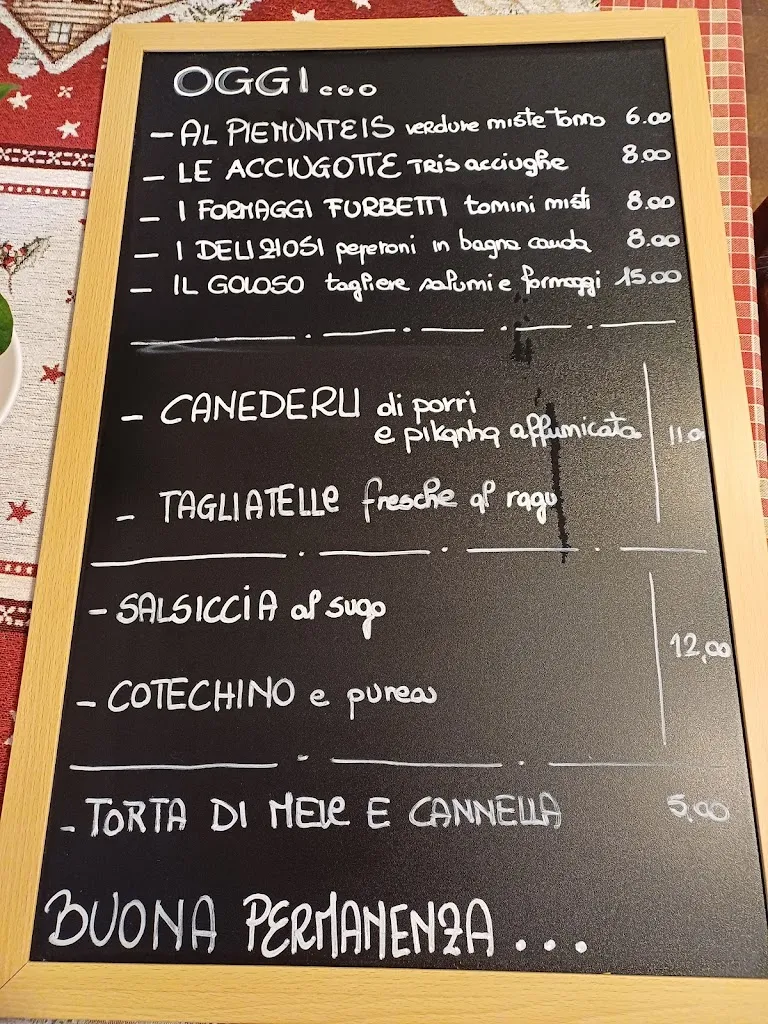 OGGI...
- AL PIEMUNTEIS verdure miste tonno 6.00
- LE ACCIUGOTTE TRIS acciughe 8.00
- I FORMAGGI FURBETTI tomini misti 8.00
- I DELIZIOSI peperoni in bagna cauda 8.00
- IL GOLOSO tagliere salumi e formaggi 15.00
- CANEDERLI di porri
e pikanha affumicata 11.0
- TAGLIATELLE fresche al ragu
- SALSICCIA al sugo
12,00
- COTECHINO e purea
- TORTA DI MELE E CANNELLA 5,00
BUONA PERMANENZA...